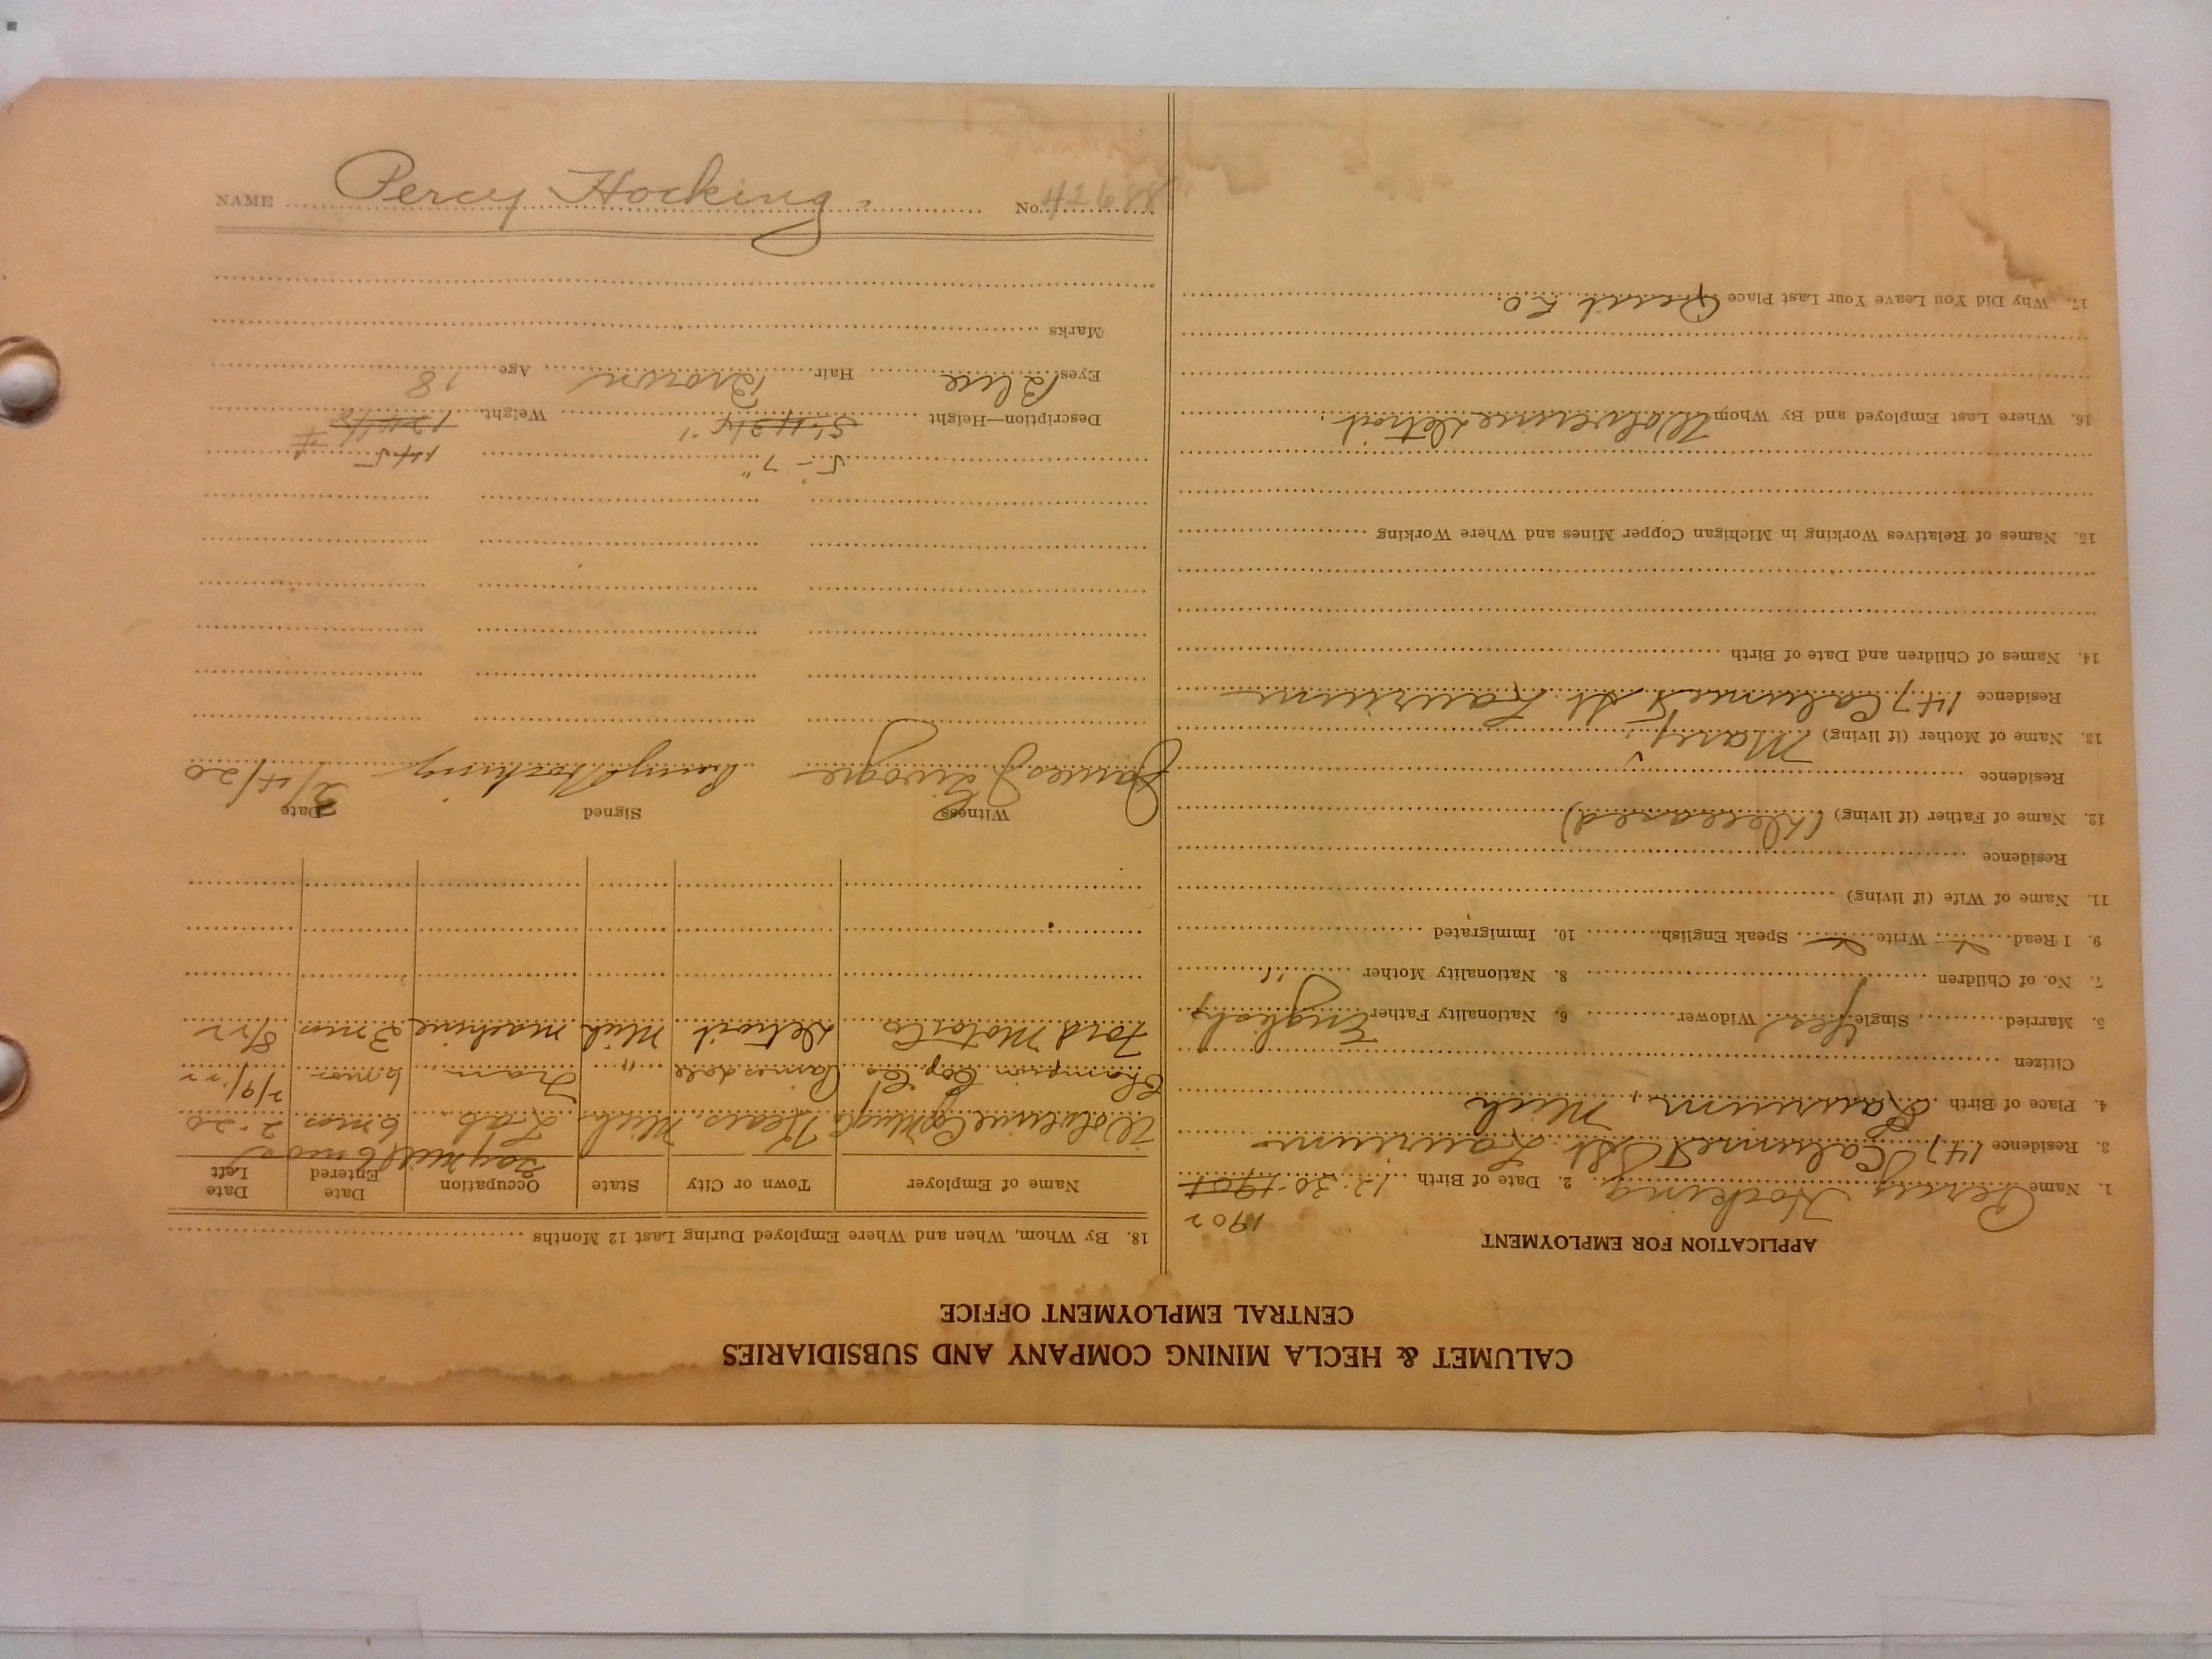 CALUMET & HECLA MINING COMPANY AND SUBSIDIARIES
CENTRAL EMPLOYMENT OFFICE
APPLICATION FOR EMPLOYMENT
1902
1. Name Percy Hocking 2. Date of Birth 12-30-1901
3. Residence 147 Calumet St Laurium
4. Place of Birth Laurium, Mich
Citizen
5. Married Single Yes Widower 6. Nationality Father English
7. No. of Children 8. Nationality Mother "
9. I Read Write Speak English 10. Immigrated
11. Name of Wife (if living)
Residence
12. Name of Father (if living) (Deceased)
Residence
13. Name of Mother (if living) Mary
Residence 147 Calumet St. Laurium
14. Names of Children and Date of Birth
15. Names of Relatives Working in Michigan Copper Mines and Where Working
16. Where Last Employed and By Whom Wolverine Detroit
17. Why Did You Leave Your Last Place Quit
18. By Whom, When and Where Employed During Last 12 Months
Name of Employer Town or City State Occupation Date Entered Date Left
Wolverine Cop Ming Co Kears. Mich Lab 6 mos 2-20
Champion Cop Co Painesdale " Tram 6 mos
Ford Motor Co Detroit Mich machine 3 mos 8/22
Witness Signed Date
James J Percy Hocking 2/4/20
5'-7" 145
Description—Height 5'-4 3/4" Weight
Eyes Blue Hair Brown Age 18
Marks
NAME Percy Hocking. No. 42688